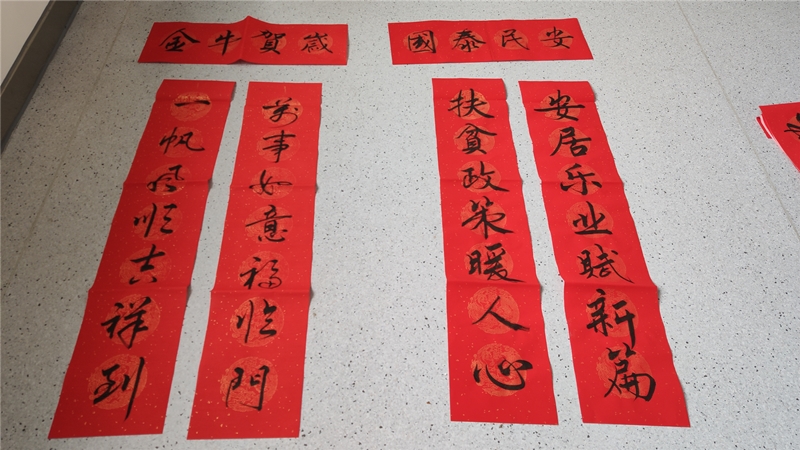 金牛賀歲
一帆风顺吉祥到
萬事如意福临門
國泰民安
扶貧政策暖人心
安居乐业賦新篇